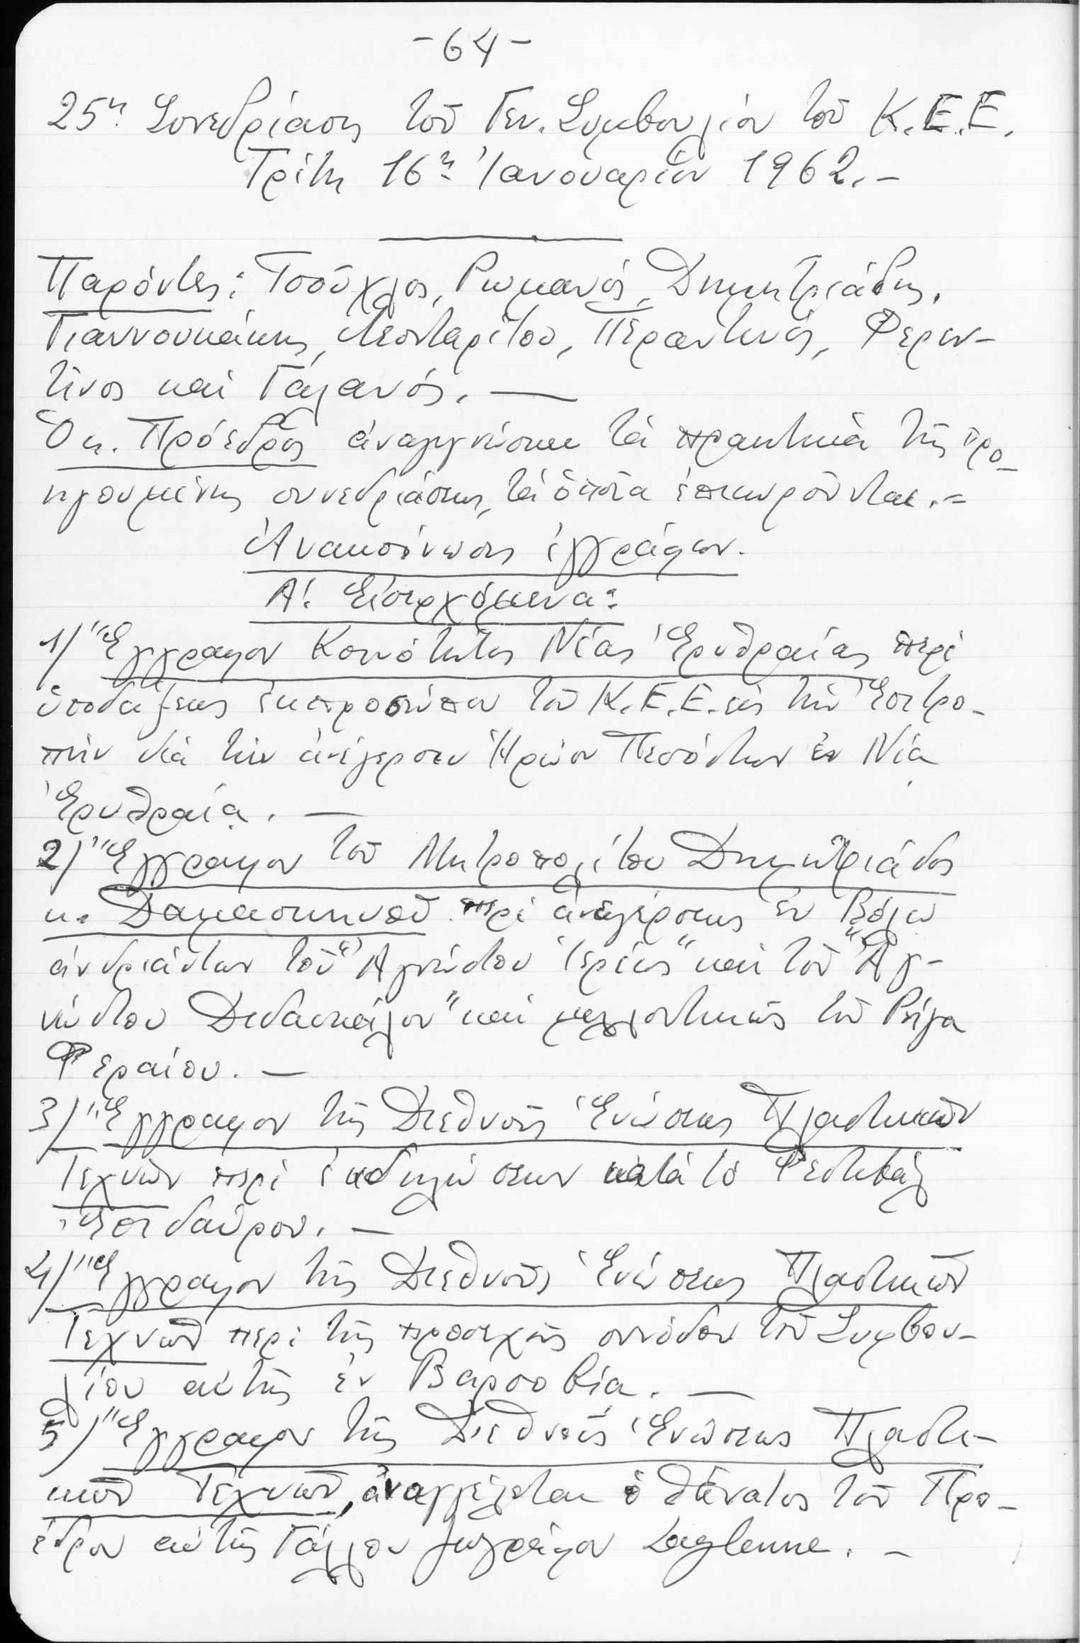 -64-
25η Συνεδρίασις τοῦ Γεν. Συμβουλίου τοῦ Κ.Ε.Ε.
Τρίτη 16η Ἰανουαρίου 1962.-
Παρόντες: Τσοῦχλος, Ρωμανός, Δημητριάδης,
Γιαννουκάκης, Λεονταρίτου, Περαντινός, Φερεν-
τῖνος καὶ Γαλανός. —
Ὁ κ. Πρόεδρος ἀναγιγνώσκει τὰ πρακτικὰ τῆς προ-
ηγουμένης συνεδριάσεως, τὰ ὁποῖα ἐπικυροῦνται.-
Ἀνακοίνωσις ἐγγράφων.
Α'. Εἰσερχόμενα:
1) Ἔγγραφον Κοινότητος Νέας Ἐρυθραίας περὶ
ὑποδείξεως ἐκπροσώπου τοῦ Κ.Ε.Ε. εἰς τὴν Ἐπιτρο-
πὴν διὰ τὴν ἀνέγερσιν Ἡρώου Πεσόντων ἐν Νέᾳ
Ἐρυθραίᾳ. —
2) Ἔγγραφον τοῦ Μητροπολίτου Δημητριάδος
κ. Δαμασκηνοῦ περὶ ἀνεγέρσεως ἐν Βόλῳ
ἀνδριάντων τοῦ "Ἀγνώστου Ἱερέως" καὶ τοῦ "Ἀγ-
νώστου Διδασκάλου" καὶ μελλοντικῶς τοῦ Ρήγα
Φεραίου. —
3) Ἔγγραφον τῆς Διεθνοῦς Ἑνώσεως Πλαστικῶν
Τεχνῶν περὶ ἐκδηλώσεων κατὰ τὸ Φεστιβὰλ
Ἐπιδαύρου. —
4) Ἔγγραφον τῆς Διεθνοῦς Ἑνώσεως Πλαστικῶν
Τεχνῶν περὶ τῆς προσεχοῦς συνόδου τοῦ Συμβου-
λίου αὐτῆς ἐν Βαρσοβίᾳ. —
5) Ἔγγραφον τῆς Διεθνοῦς Ἑνώσεως Πλαστι-
κῶν Τεχνῶν, ἀναγγέλεται ὁ θάνατος τοῦ Προ-
έδρου αὐτῆς Γάλλου ζωγράφου . —